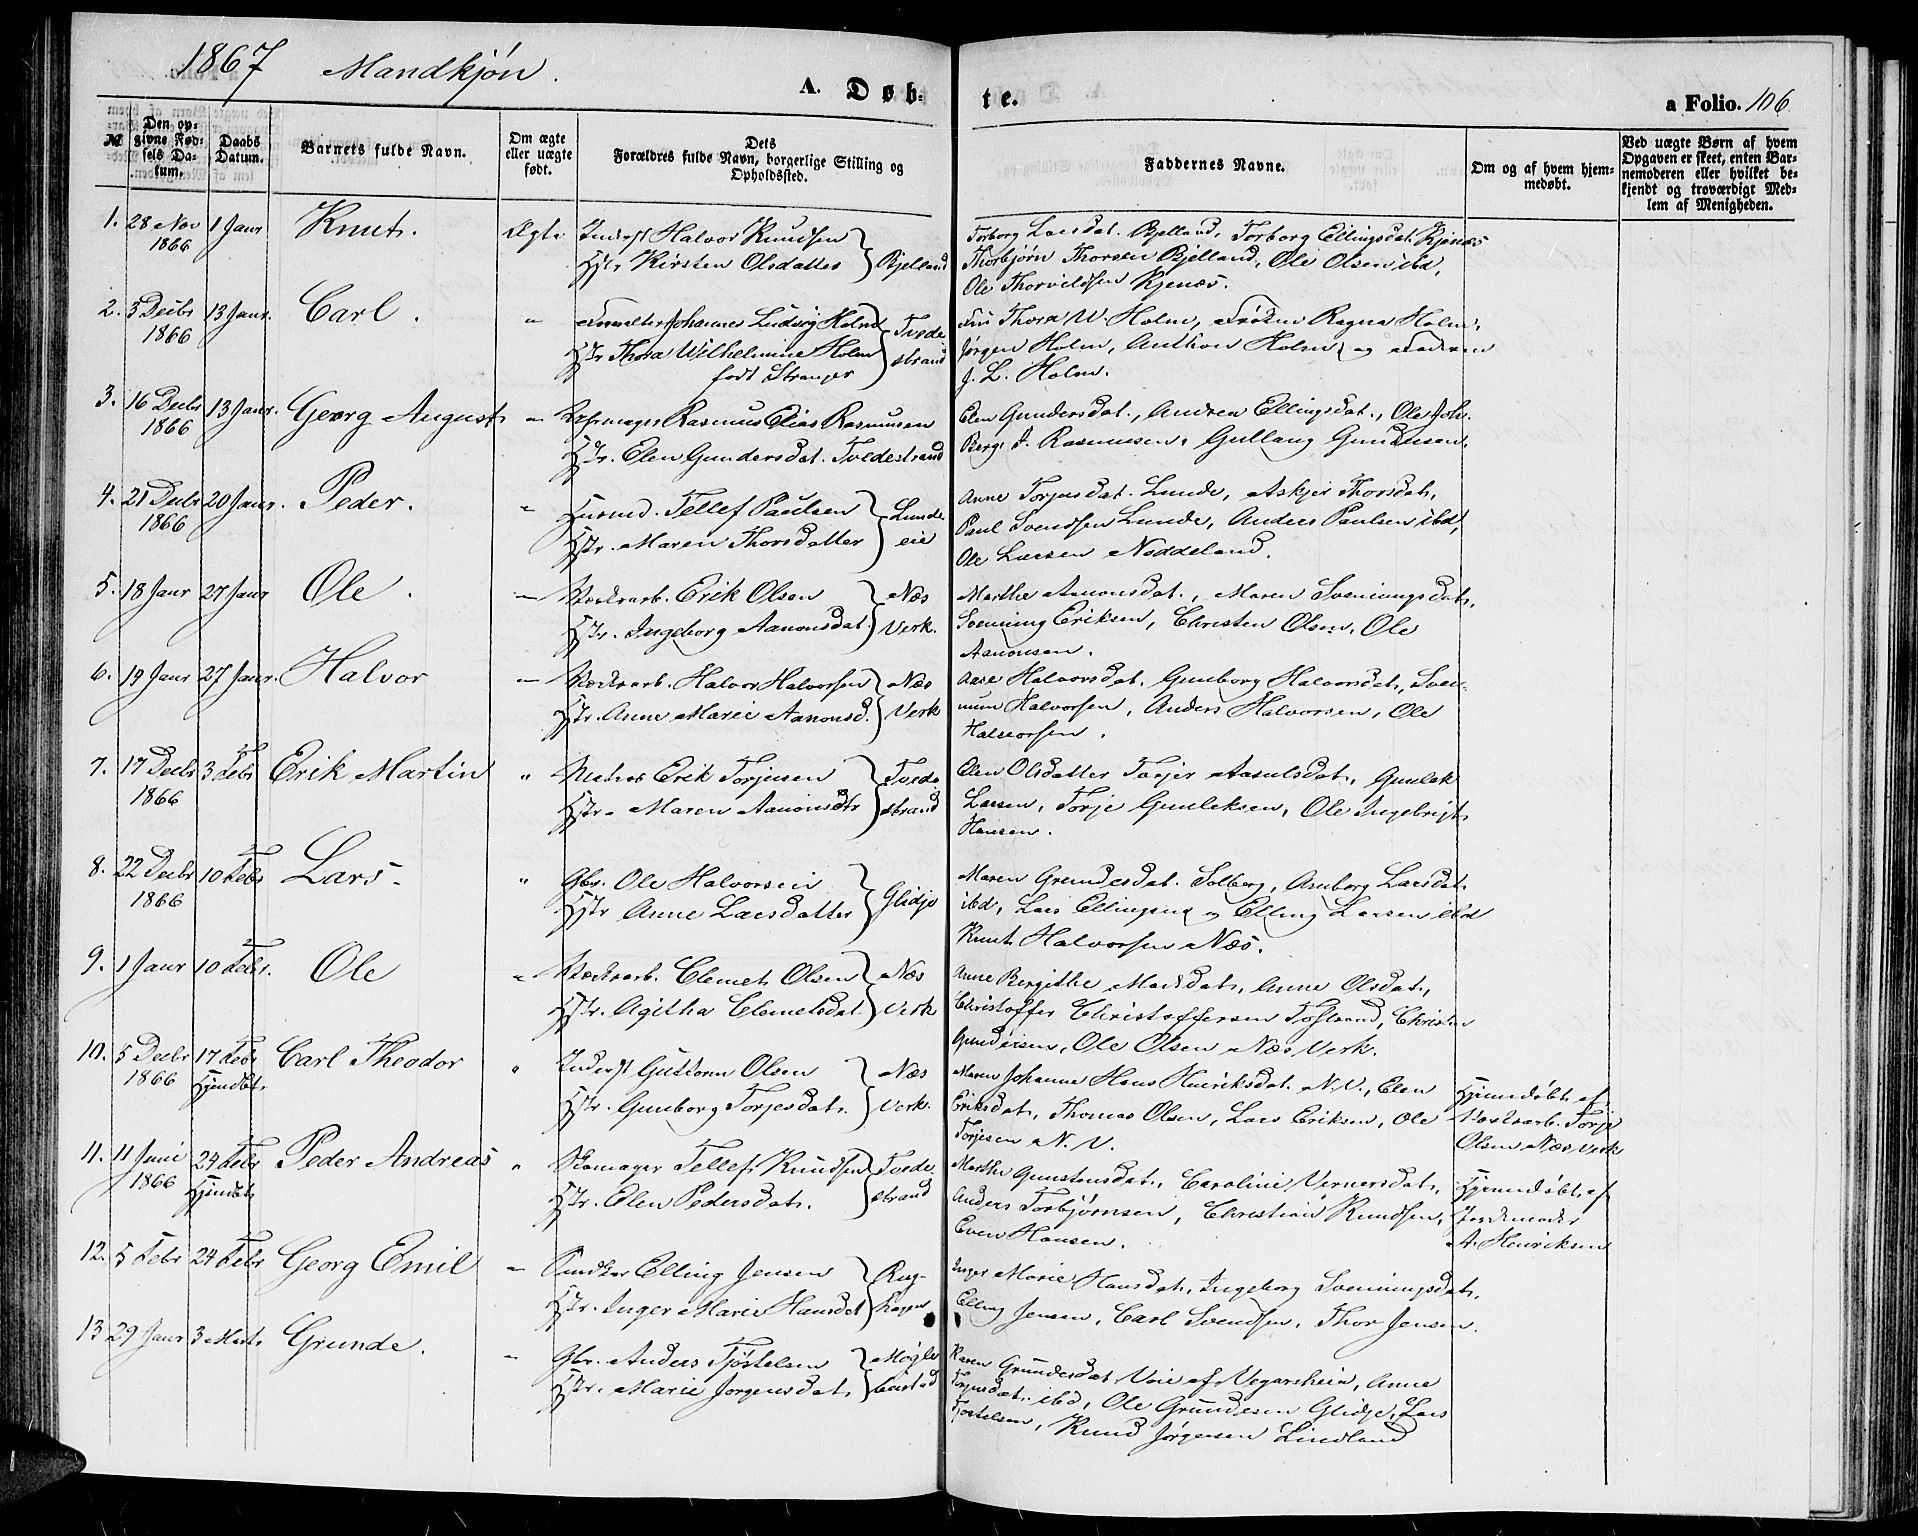 1867 Mandkjøn.
A. Døbte.
a Folio. 106
№
Den opgivne Fødsels Datum.
Daabs Datum.
Barnets fulde Navn.
Om ægte eller uægte født.
Dets Forældres fulde Navn, borgerlige Stilling og Opholdssted.
Faddernes Navne.
Om og af hvem hjemmedøbt.
Ved uægte Børn af hvem Opgaven er skeet, enten Barnemoderen eller hvilket bekjendt og troværdigt Medlem af Menigheden.
1. 28 Nov 1866 1 Janr Knut. Ægte Inderst Halvor Knudsen
Hstr Kirsten Olsdatter } Bjelland
Torborg Larsdat. Bjelland, Torborg Ellingsdat. Kjenæs
Thorbjørn Thorsen Bjelland, Ole Olsen ibd,
Ole Thorvildsen Kjenæs.
2. 5 Decbr 1866 13 Janr. Carl. " Johannes Ludvig Holm
Hstr Thora Wilhelmine Holm
født Stranger } Tvedestrand
Fru Thora W. Holm, Frøken Ragna Holm,
Jørgen Holm, Anthon Holm og Faderen
J. L. Holm.
3. 16 Decbr 1866 13 Janr. Georg August " Rasmus Elias Rasmusen
Hstr. Elen Gundersdat. Tvedestrand
Elen Gundersdat., Andrea Ellingsdat., Ole Joh.
Berg, J. Rasmusen, Gullaug Gundersen.
4. 21 Decbr 1866 20 Janr. Peder. " Husmd. Tellef Paulsen
Hstr. Maren Thorsdatter } Lunde eie
Anne Torjusdat. Lunde, Askjer Thorsdat,
Paul Svendsen Lunde, Anders Paulsen ibd,
Ole Larsen Noddeland.
5. 18 Janr 27 Janr Ole. " Værksarb. Erik Olsen
Hstr. Ingeborg Aanonsdat. } Næs Verk.
Marthe Aanonsdat., Maren Svenningsdat,
Svenning Eriksen, Christen Olsen, Ole
Aanonsen.
6. 19 Janr 27 Janr. Halvor " Værksarb. Halvor Halvorsen
Hstr. Anne Marie Aanonsd. } Næs Verk
Aase Halvorsdat. Gunborg Halvorsdat, Sven-
num Halvorsen, Anders Halvorsen, Ole
Halvorsen.
7. 17 Decbr 1866 3 Febr Erik Martin " Matros Erik Torjusen
Hstr. Maren Aanonsdtr } Tvedestrand
Elen Olsdatter Torjer Aasulsdat, Gunlek
Larsen, Torje Gunleksen, Ole Ingebrigt
Hansen.
8. 22 Decbr 1866 10 Febr Lars. " Gbr. Ole Halvorsen
Hstr Anne Larsdatter } Glidje
Maren Grundesdat. Solberg, Asnborg Larsdat.
ibd, Lars Ellingsen og Elling Larsen ibd
Knut Halvorsen Næs.
9. 1 Janr 10 Febr. Ole " Værksarb. Clemet Olsen
Hstr. Agitha Clemetsdat } Næs Verk
Anne Bergithe Madsdat, Anne Olsdat,
Christoffer Christoffersen Fosland, Christen
Gundersen, Ole Olsen Næs Verk.
10. 5 Decbr 1866 17 Febr Hjmdbt. Carl Theodor " Inderst Guttorm Olsen
Hstr. Gunborg Torjesdat. } Næs Verk.
Maren Johanne Hans Henriksdat. N.V., Elen
Eriksdat, Thomas Olsen, Lars Eriksen, Ole
Torjesen N. V.
Hjemmdøbt af
Værksarb. Torje
Olsen Næs Verk
11. 11 Juni 1866 24 Febr Hjmdbt. Peder Andreas " Skomager Tellef Knudsen
Hstr. Elen Pedersdat. } Tvedestrand
Marthe Gunstensdat., Caroline Vernersdat,
Anders Torbjørnsen, Christian Knudsen,
Even Hansen.
Hjemmdøbt af
Jordemoder
A. Henriksen
12. 5 Febr 24 Febr Georg Emil " Elling Jensen
Hstr. Inger Marie Hansdat
Inger Marie Hansdat, Ingeborg Svenningsdat,
Elling Jensen, Carl Svendsen, Thor Jensen.
13 29 Janr 3 Marts Grunde. " Gbr. Anders Tjøstelsen
Hstr. Marie Jørgensdat.
Karen Grundesdat. Voie af Vegarsheia, Anne
Torjusdat. ibd, Ole Grundesen Glidje, Lars
Tjøstelsen, Knud Jørgensen Lindland